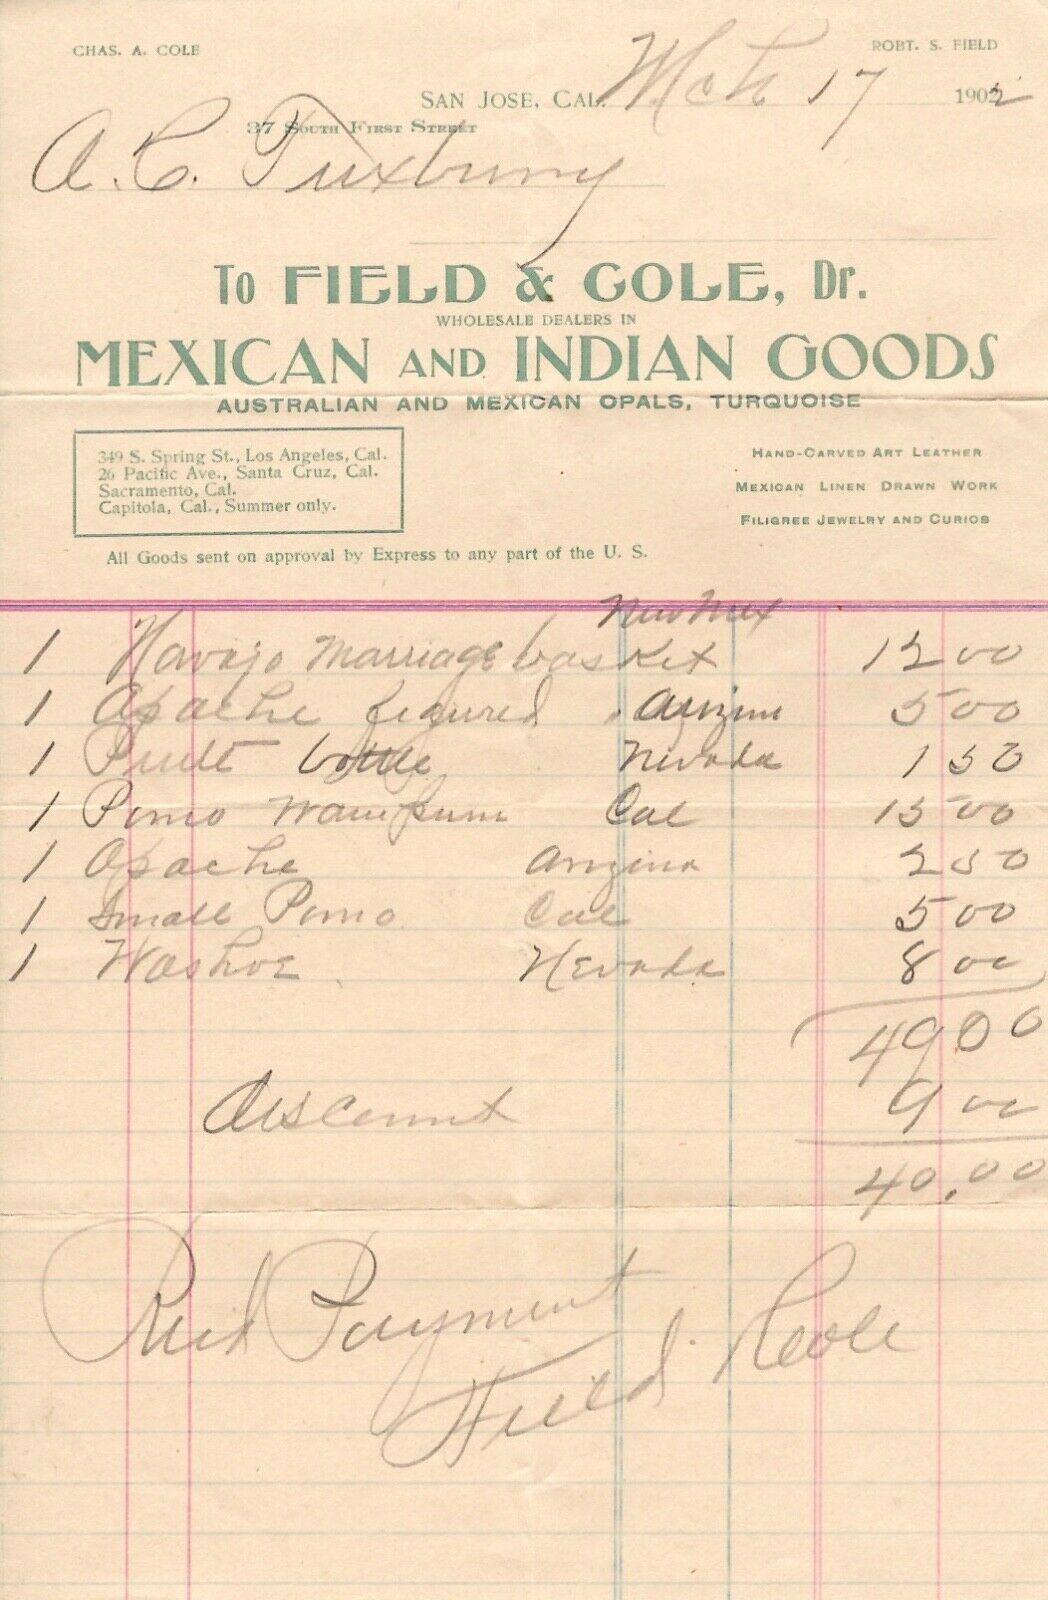 CHAS. A. COLE
ROBT. S. FIELD
SAN JOSE, CAL. Mch 17 1902
37 SOUTH FIRST STREET
A. C. Tuxbury
TO FIELD & COLE, Dr.
WHOLESALE DEALERS IN
MEXICAN AND INDIAN GOODS
AUSTRALIAN AND MEXICAN OPALS, TURQUOISE
349 S. Spring St., Los Angeles, Cal.
26 Pacific Ave., Santa Cruz, Cal.
Sacramento, Cal.
Capitola, Cal., Summer only.
HAND-CARVED ART LEATHER
MEXICAN LINEN DRAWN WORK
FILIGREE JEWELRY AND CURIOS
All Goods sent on approval by Express to any part of the U. S.
1 Navajo Marriage basket New Mex 12 00
1 Apache figured Arizona 5 00
1 Piute bottle Nevada 1 50
1 Pomo Wampum Cal 15 00
1 Apache Arizona 2 50
1 Small Pomo Cal 5 00
1 Washoe Nevada 8 00
49 00
discount 9 00
40.00
Recd Payment
Field & Cole